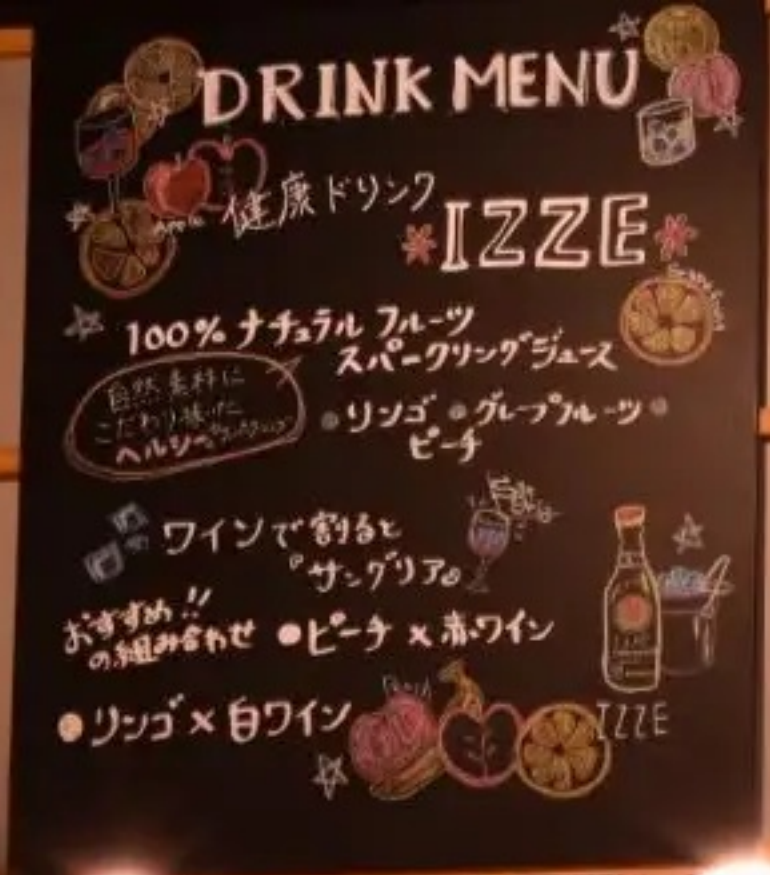 DRINK MENU
Apple
健康ドリンク
IZZE
100% ナチュラル フルーツ
スパークリングジュース
自然素料に
こだわり抜いた
ヘルシー
リンゴ グレープフルーツ
ピーチ
ワインで割ると
『サングリア』
おすすめ!!
の組み合わせ
ピーチ × 赤ワイン
リンゴ × 白ワイン
Peach
IZZE